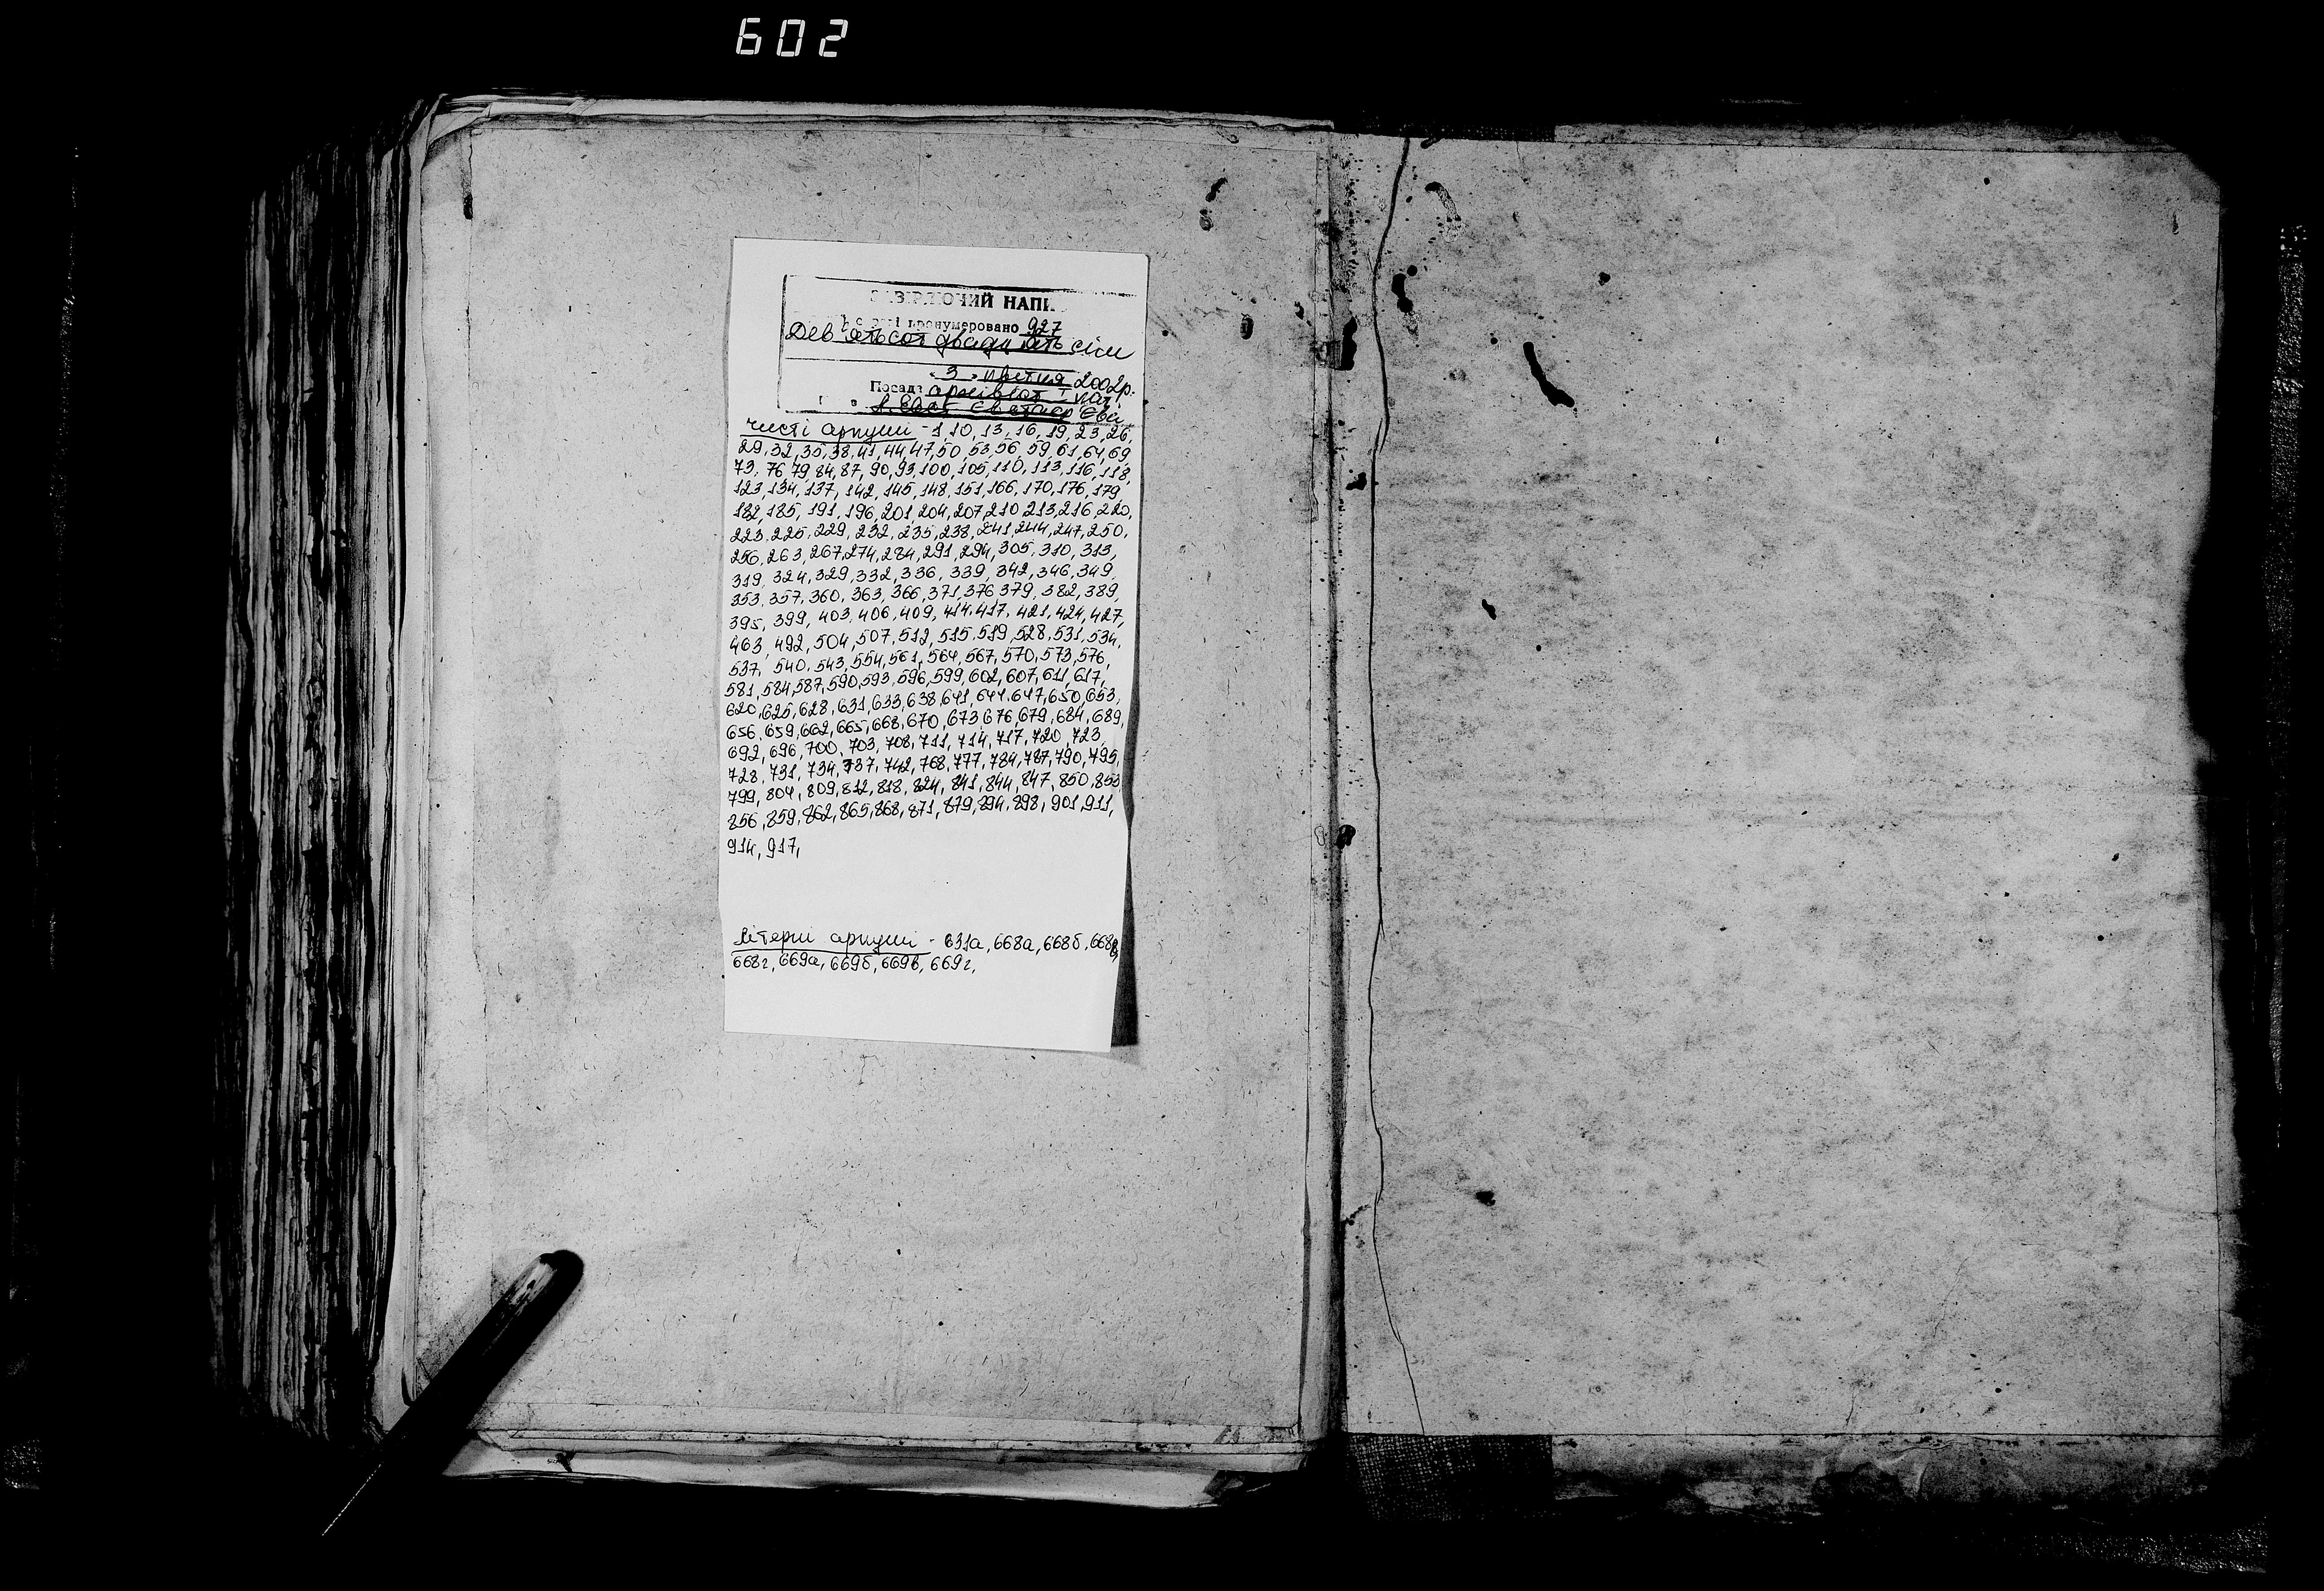 602
ЗАВІРЯЮЧИЙ НАПИ
пронумеровано 927
Дев'ятьсот двадцять сім
"3" квітня 2002р.
Посада архівіст I кат.
чисті аркуші - 1, 10, 13, 16, 19, 23, 26,
29, 32, 35, 38, 41, 44, 47, 50, 53, 56, 59, 61, 64, 69,
73, 76, 79, 84, 87, 90, 93, 100, 105, 110, 113, 116, 118,
123, 134, 137, 142, 145, 148, 151, 166, 170, 176, 179,
182, 185, 191, 196, 201, 204, 207, 210, 213, 216, 220,
223, 225, 229, 232, 235, 238, 241, 244, 247, 250,
256, 263, 267, 274, 284, 291, 294, 305, 310, 313,
319, 324, 329, 332, 336, 339, 342, 346, 349,
353, 357, 360, 363, 366, 371, 376, 379, 382, 389,
395, 399, 403, 406, 409, 414, 417, 421, 424, 427,
463, 492, 504, 507, 512, 515, 519, 528, 531, 534,
537, 540, 543, 554, 561, 564, 567, 570, 573, 576,
581, 584, 587, 590, 593, 596, 599, 602, 607, 611, 617,
620, 625, 628, 631, 633, 638, 641, 644, 647, 650, 653,
656, 659, 662, 665, 668, 670, 673, 676, 679, 684, 689,
692, 696, 700, 703, 708, 711, 714, 717, 720, 723,
728, 731, 734, 737, 742, 768, 777, 784, 787, 790, 795,
799, 804, 809, 812, 818, 824, 841, 844, 847, 850, 853
856, 859, 862, 865, 868, 871, 879, 894, 898, 901, 911,
914, 917,
літерні аркуші - 631а, 668а, 668б, 668в,
668г, 669а, 669б, 669в, 669г,